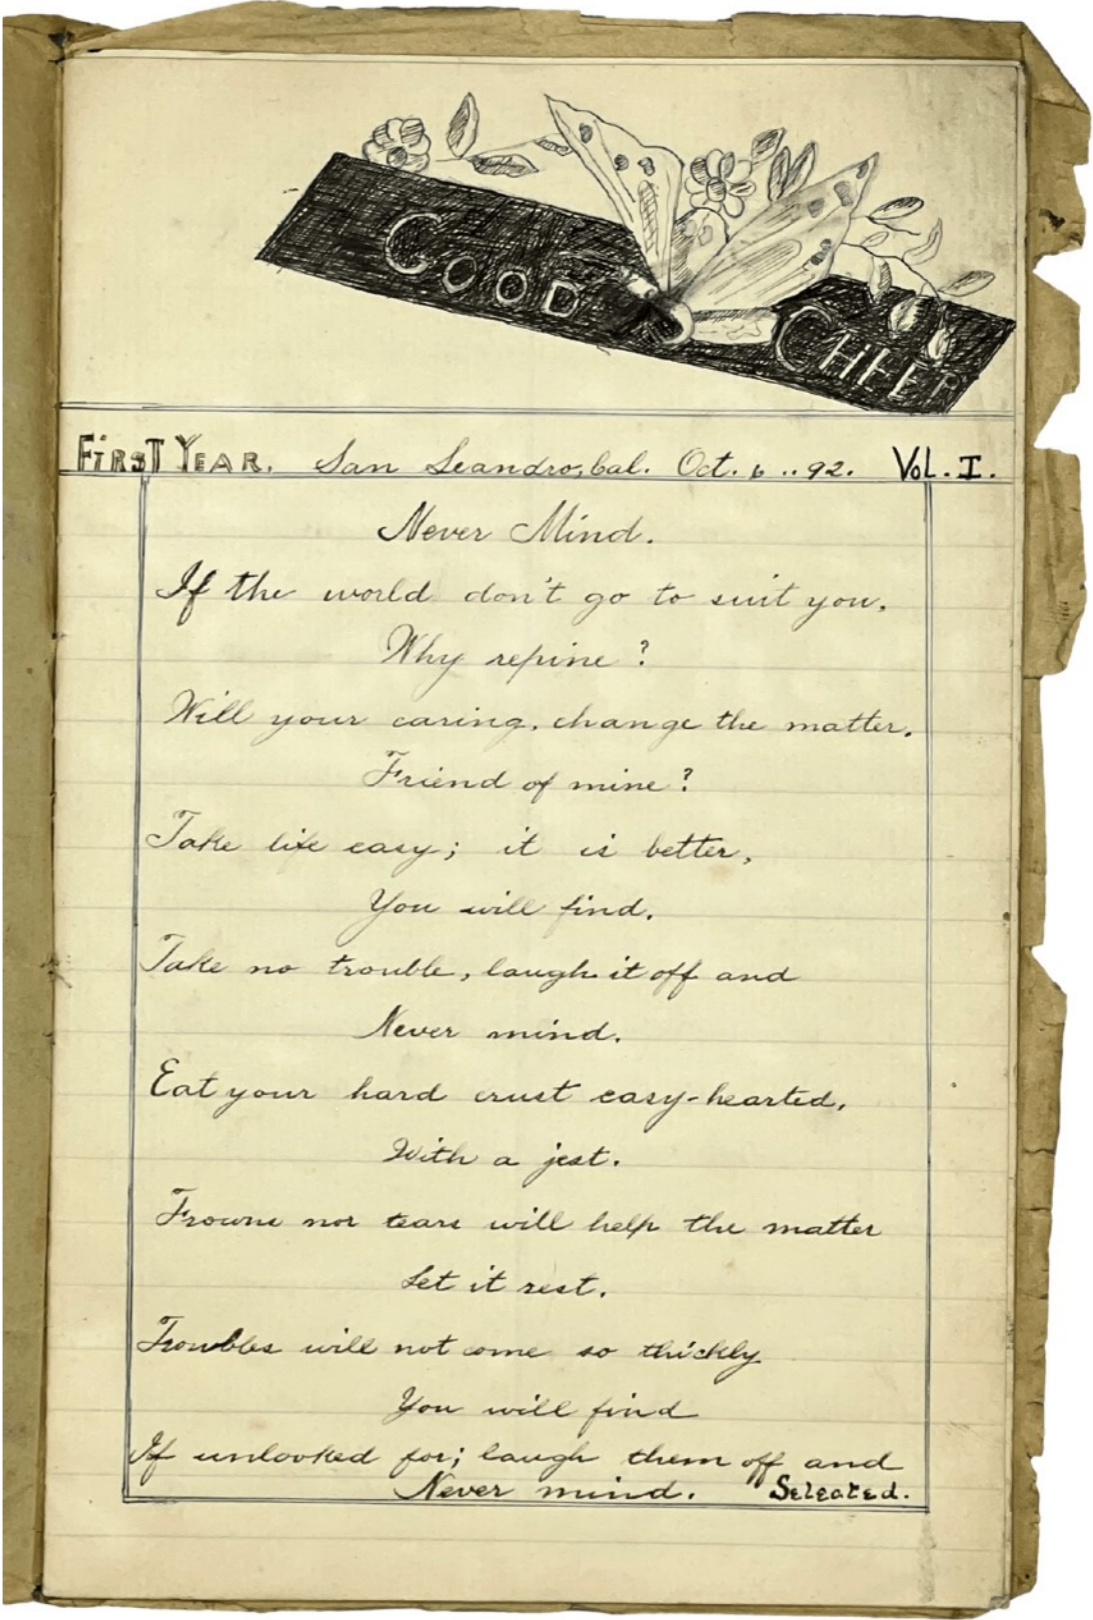 GOOD CHEER
FIRST YEAR. San Leandro, Cal. Oct. 6..92. VOL. I.
Never Mind.
If the world don't go to suit you,
Why repine?
Will your caring, change the matter,
Friend of mine?
Take life easy; it is better,
You will find.
Take no trouble, laugh it off and
Never mind.
Eat your hard crust easy-hearted,
With a jest.
Frowns nor tears will help the matter
Let it rest.
Troubles will not come so thickly
You will find
If unlooked for; laugh them off and
Never mind. Selected.